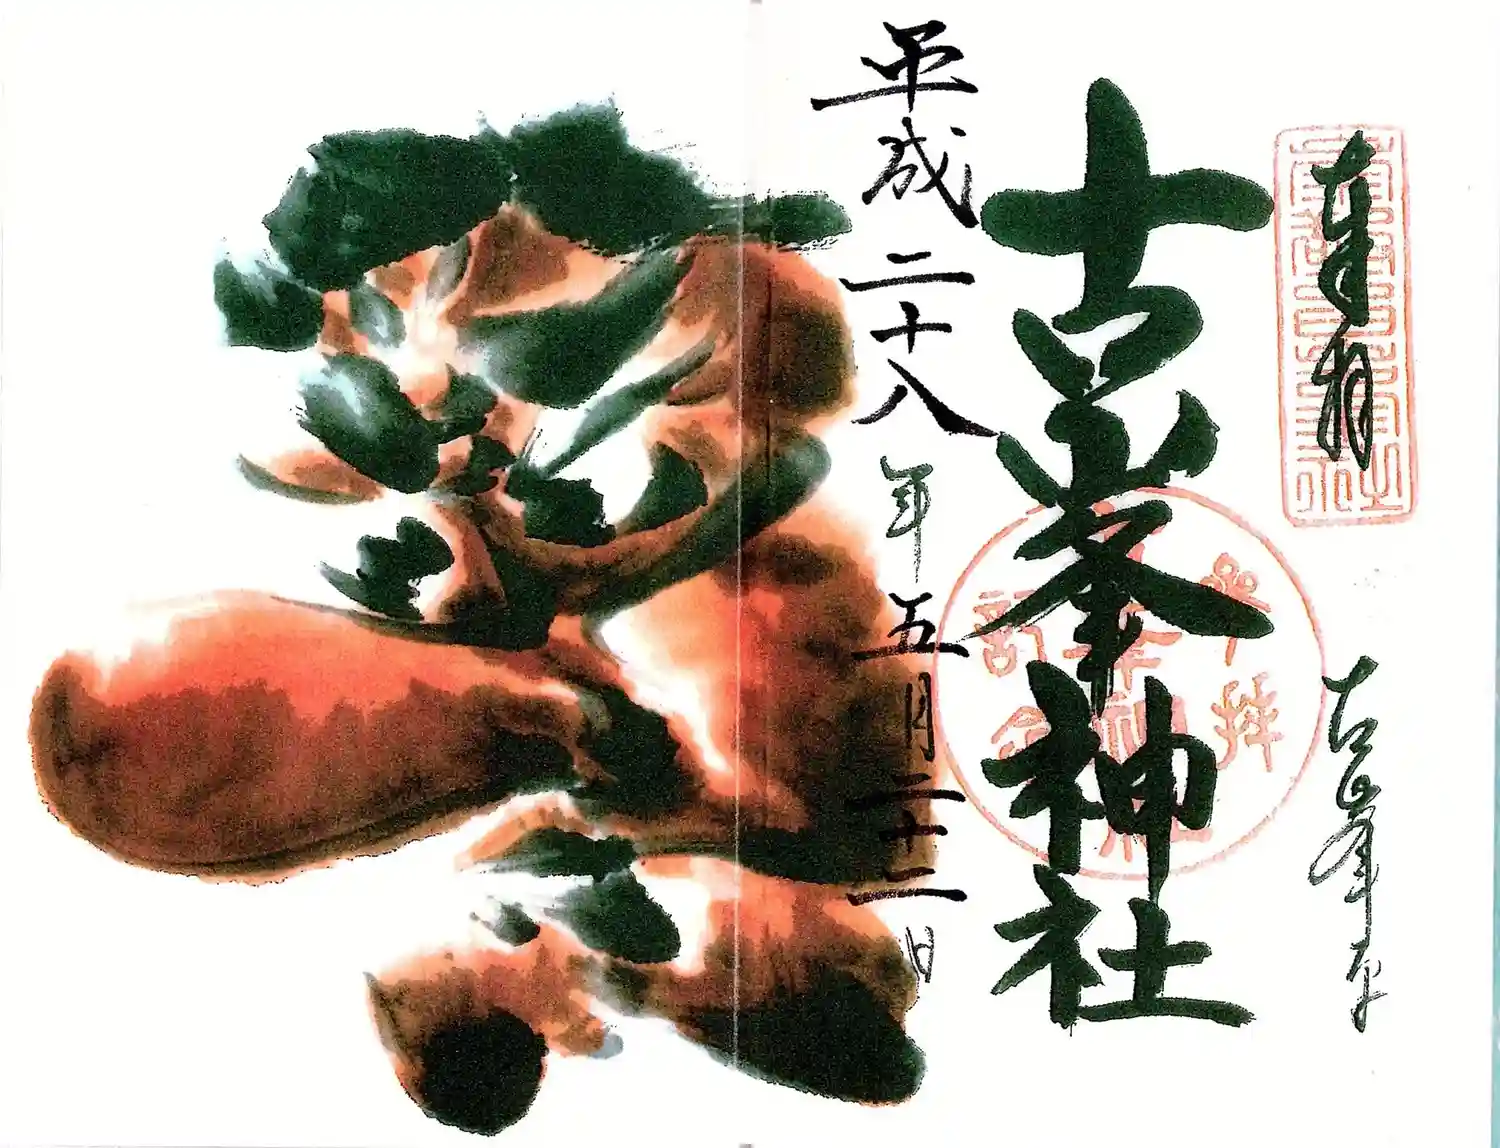 奉拝
古峯原
古峯神社
参拝
記念
平成二十八年五月二十二日